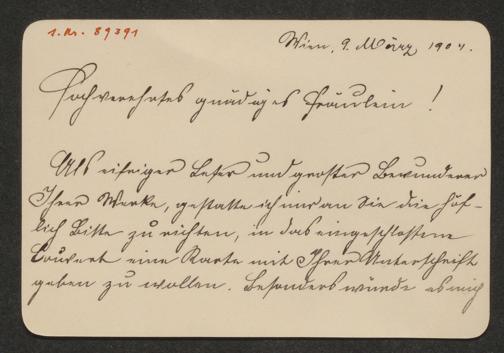 I. N. 89391
Wien, 9. März 1901.
Hochverehrtes gnädiges Fräulein!
Als eifriger Leser und großer Bewunderer
Ihrer Werke, gestatte ich mir an Sie die höf-
lich Bitte zu richten, in das eingeschlossene
Couvert eine Karte mit Ihrer Unterschrift
geben zu wollen. Besonders würde es mich